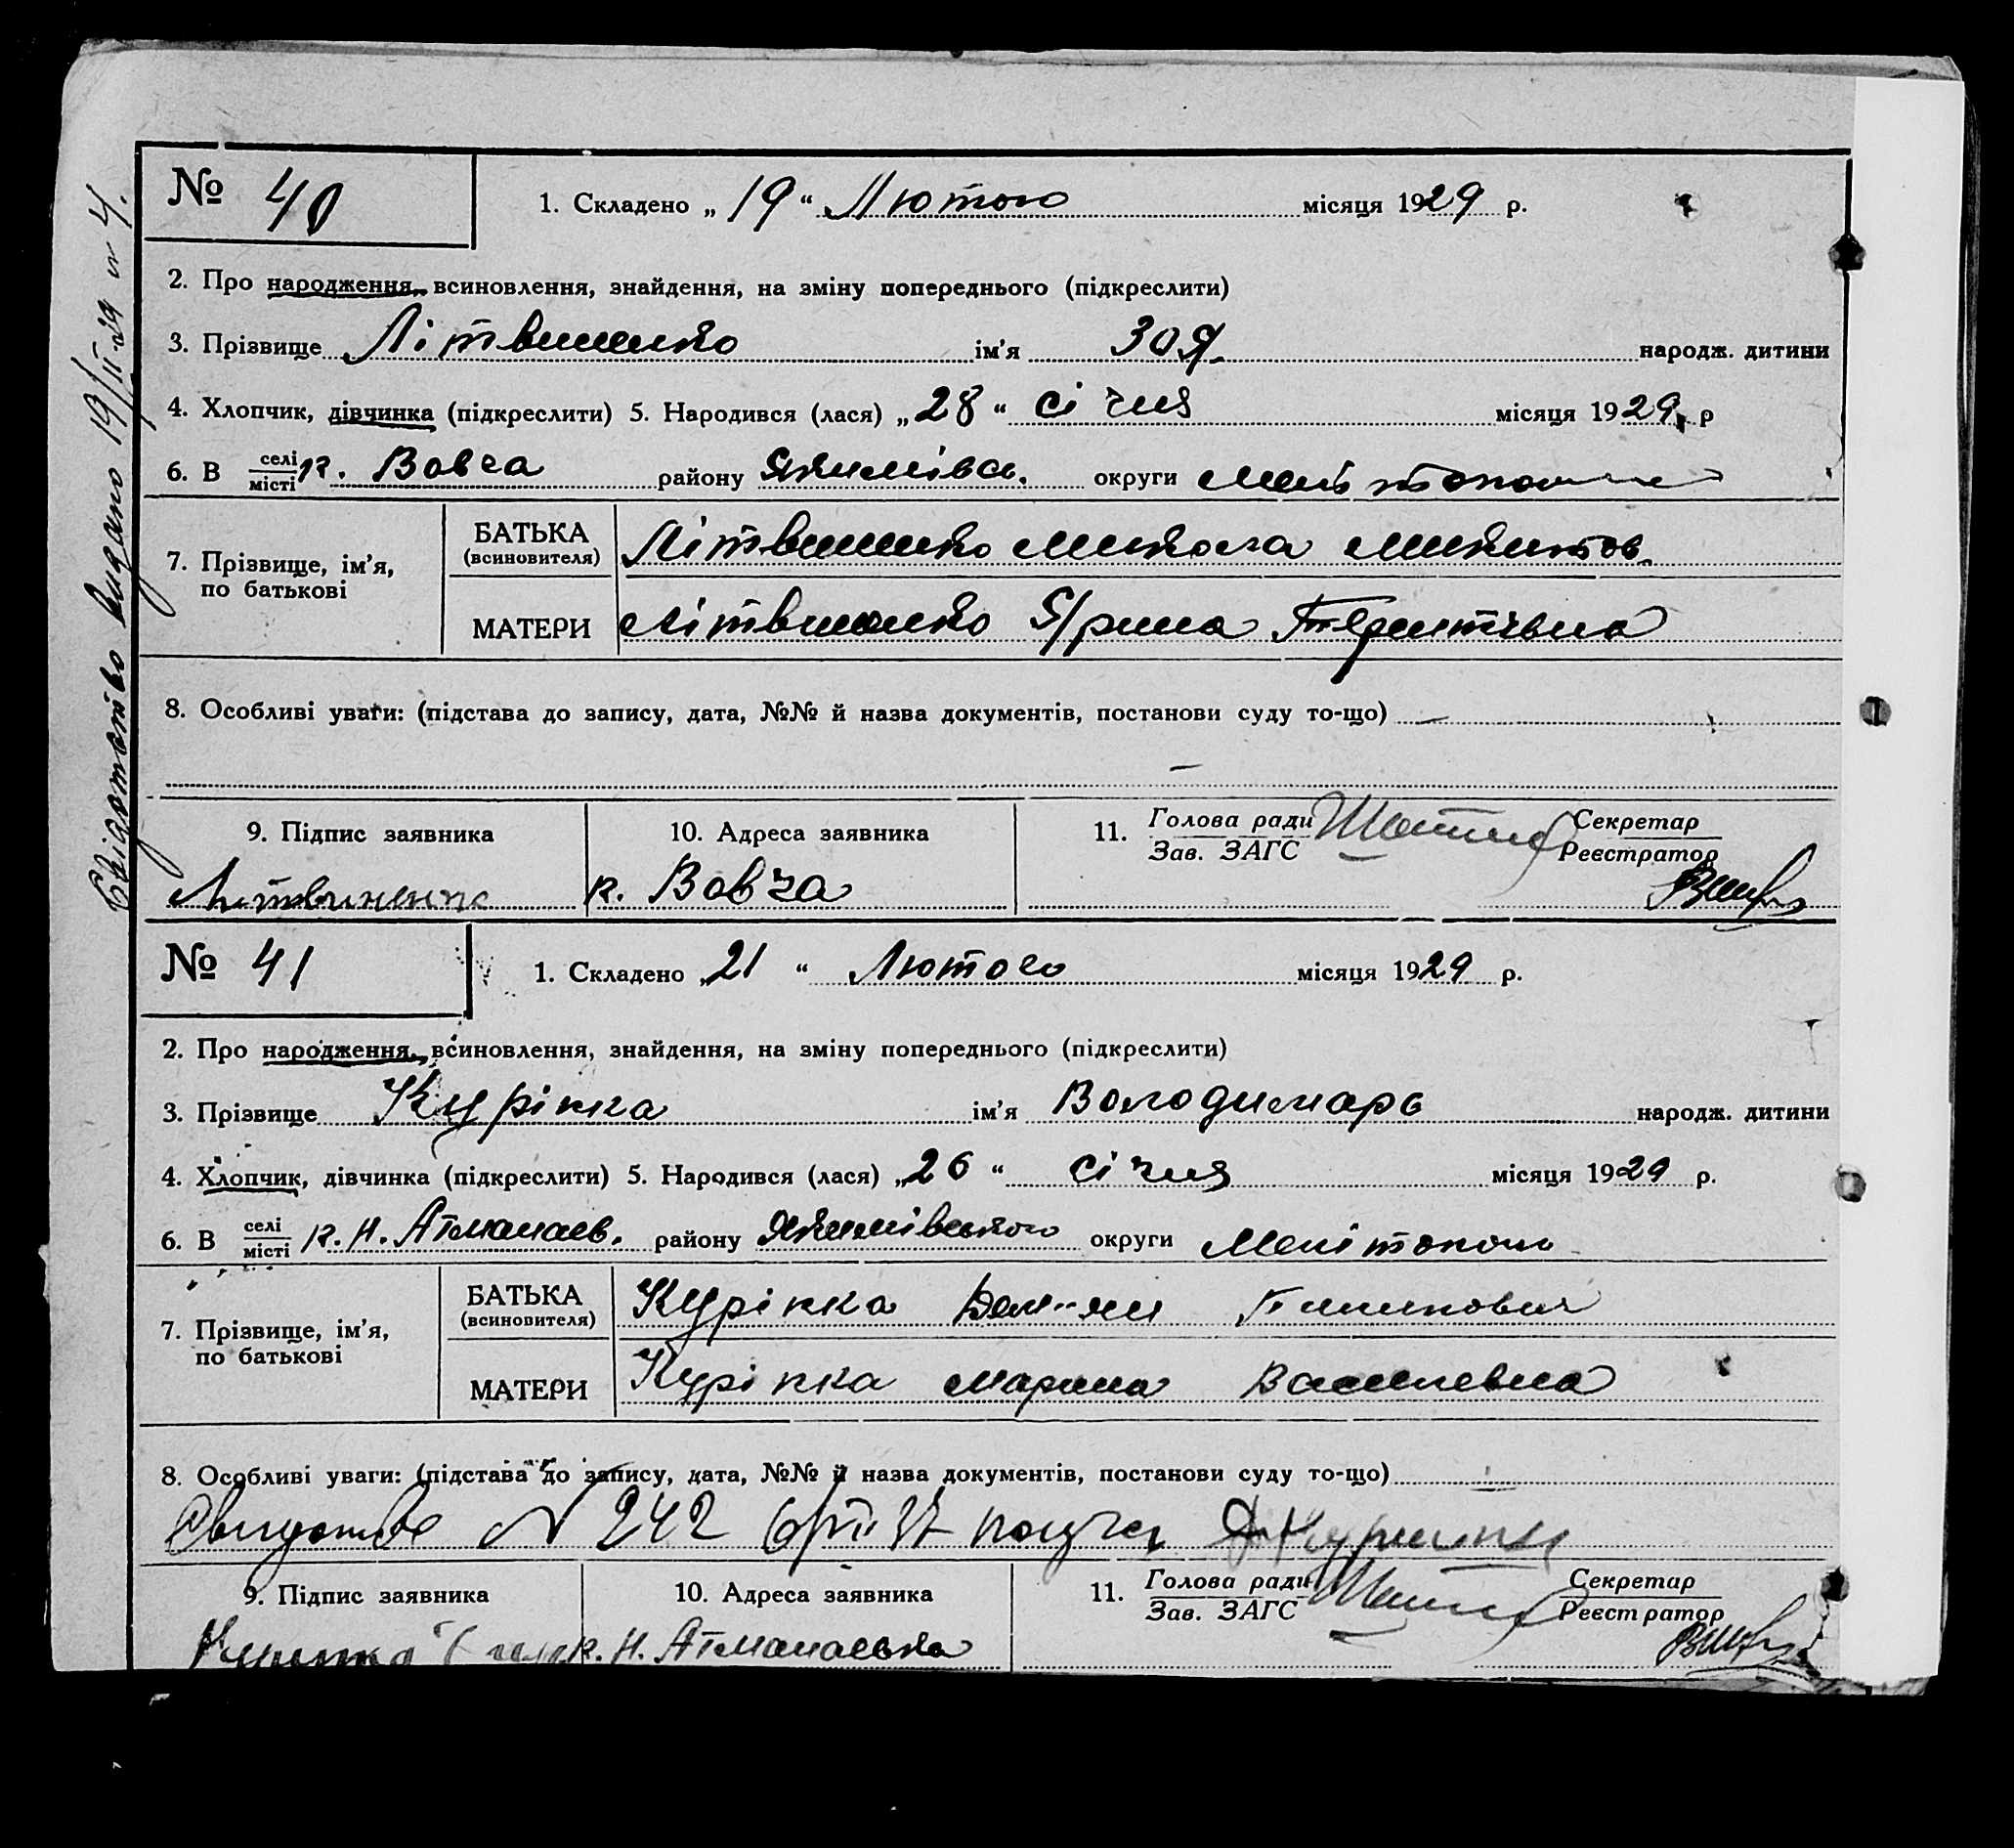 Свідотство видано 19/II-29 № 4.
№ 40
1. Складено „19“ Лютого місяця 1929 р.
2. Про народження, всиновлення, знайдення, на зміну попереднього (підкреслити)
3. Прізвище Літвиненко ім'я Зоя. народж. дитини
4. Хлопчик, дівчинка (підкреслити) 5. Народився (лася) „28“ січня місяця 1929 р
6. В селі місті к. Вовча району Якимівсь. округи
7. Прізвище, ім'я, по батькові
БАТЬКА (всиновителя) Літвиненко Микола Микитов.
МАТЕРИ Літвиненко Ярина Терентівна
8. Особливі уваги: (підстава до запису, дата, №№ й назва документів, постанови суду то-що) —
—
9. Підпис заявника
10. Адреса заявника
11. Голова ради Зав. ЗАГС
Секретар Реєстратор
Литвиненко
к. Вовча
№ 41
1. Складено „21“ Лютого місяця 1929 р.
2. Про народження, всиновлення, знайдення, на зміну попереднього (підкреслити)
3. Прізвище Куріпка ім'я Володимарь народж. дитини
4. Хлопчик, дівчинка (підкреслити) 5. Народився (лася) „26“ січня місяця 1929 р.
6. В селі місті к. Н. Атманаев. району Якимівського округи Мелітополь
7. Прізвище, ім'я, по батькові
БАТЬКА (всиновителя) Куріпка Дем'ян
МАТЕРИ Куріпка Марина Василевна
8. Особливі уваги: (підстава до запису, дата, №№ й назва документів, постанови суду то-що)
№ 242
9. Підпис заявника
10. Адреса заявника
11. Голова ради Зав. ЗАГС
Секретар Реєстратор
к. Н. Атманаевка